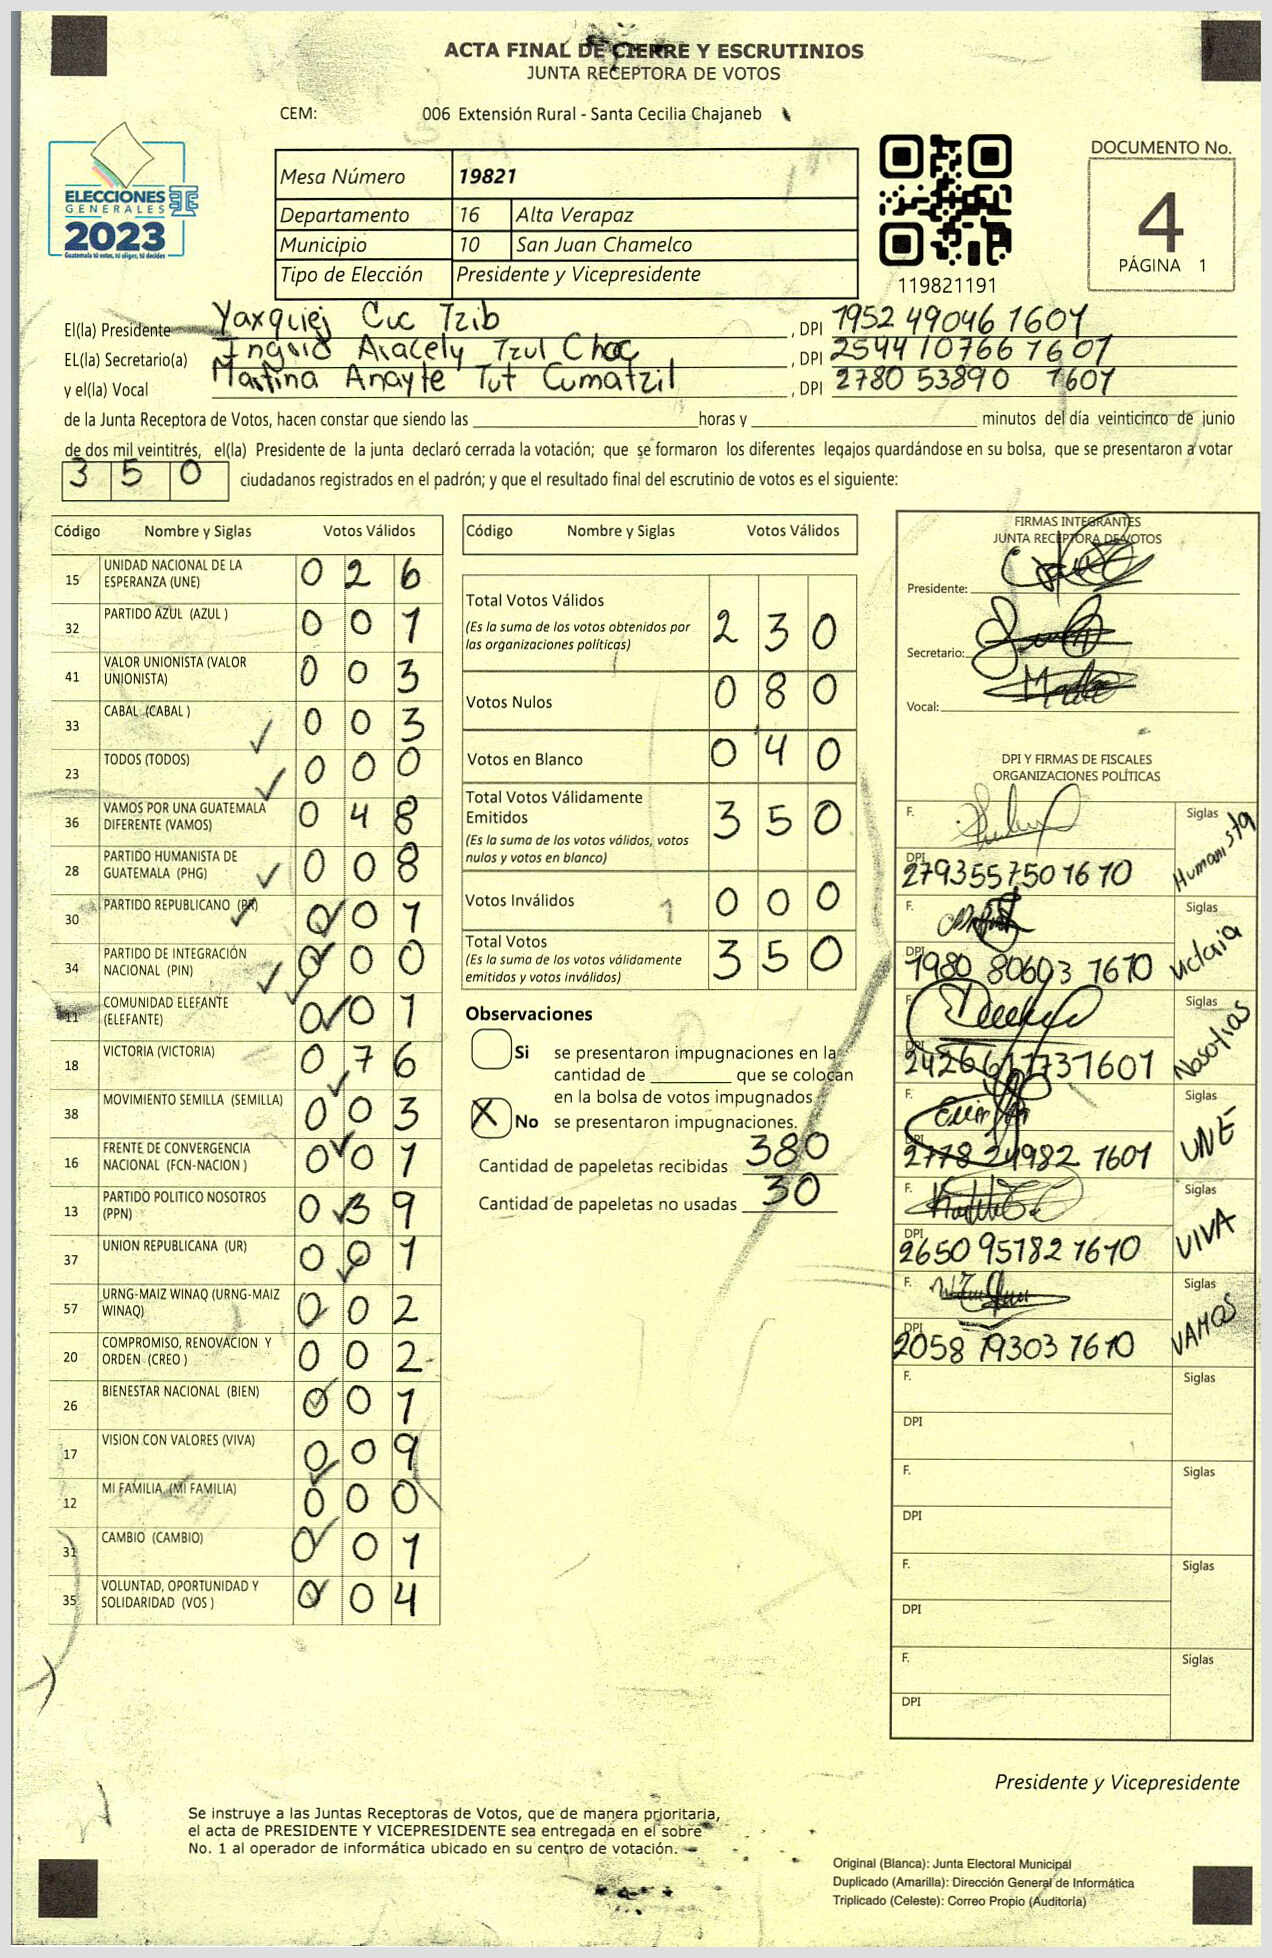 ACTA FINAL DE CIERRE Y ESCRUTINIOS
JUNTA RECEPTORA DE VOTOS
CEM: 006 Extensión Rural - Santa Cecilia Chajaneb
ELECCIONES
GENERALES
2023
Guatemala tú votas, tú eliges, tú decides
Mesa Número 19821
Departamento 16 Alta Verapaz
Municipio 10 San Juan Chamelco
Tipo de Elección Presidente y Vicepresidente
119821191
DOCUMENTO No.
4
PÁGINA 1
El(la) Presidente Yaxquiej Cuc Tzib , DPI 1952 49046 1601
EL(la) Secretario(a) Ingrid Aracely Tzul Choc , DPI 2544 10766 1601
y el(la) Vocal Martina Anayte Tut Cumatzil , DPI 2780 53890 1601
de la Junta Receptora de Votos, hacen constar que siendo las ____ horas y ____ minutos del día veinticinco de junio
de dos mil veintitrés, el(la) Presidente de la junta declaró cerrada la votación; que se formaron los diferentes legajos guardándose en su bolsa, que se presentaron a votar
3 5 0 ciudadanos registrados en el padrón; y que el resultado final del escrutinio de votos es el siguiente:
Código Nombre y Siglas Votos Válidos
15 UNIDAD NACIONAL DE LA ESPERANZA (UNE) 0 2 6
32 PARTIDO AZUL (AZUL ) 0 0 1
41 VALOR UNIONISTA (VALOR UNIONISTA) 0 0 3
33 CABAL (CABAL ) 0 0 3
23 TODOS (TODOS) 0 0 0
36 VAMOS POR UNA GUATEMALA DIFERENTE (VAMOS) 0 4 8
28 PARTIDO HUMANISTA DE GUATEMALA (PHG) 0 0 8
30 PARTIDO REPUBLICANO (PR) 0 0 1
34 PARTIDO DE INTEGRACIÓN NACIONAL (PIN) 0 0 0
11 COMUNIDAD ELEFANTE (ELEFANTE) 0 0 1
18 VICTORIA (VICTORIA) 0 7 6
38 MOVIMIENTO SEMILLA (SEMILLA) 0 0 3
16 FRENTE DE CONVERGENCIA NACIONAL (FCN-NACION ) 0 0 1
13 PARTIDO POLITICO NOSOTROS (PPN) 0 3 9
37 UNION REPUBLICANA (UR) 0 0 1
57 URNG-MAIZ WINAQ (URNG-MAIZ WINAQ) 0 0 2
20 COMPROMISO, RENOVACION Y ORDEN (CREO ) 0 0 2
26 BIENESTAR NACIONAL (BIEN) 0 0 1
17 VISION CON VALORES (VIVA) 0 0 9
12 MI FAMILIA (MI FAMILIA) 0 0 0
31 CAMBIO (CAMBIO) 0 0 1
35 VOLUNTAD, OPORTUNIDAD Y SOLIDARIDAD (VOS ) 0 0 4
Código Nombre y Siglas Votos Válidos
Total Votos Válidos 2 3 0
(Es la suma de los votos obtenidos por
las organizaciones políticas)
Votos Nulos 0 8 0
Votos en Blanco 0 4 0
Total Votos Válidamente
Emitidos 3 5 0
(Es la suma de los votos válidos, votos
nulos y votos en blanco)
Votos Inválidos 0 0 0
Total Votos 3 5 0
(Es la suma de los votos válidamente
emitidos y votos inválidos)
Observaciones
Si se presentaron impugnaciones en la
cantidad de ____ que se colocan
en la bolsa de votos impugnados
X No se presentaron impugnaciones.
Cantidad de papeletas recibidas 380
Cantidad de papeletas no usadas 30
FIRMAS INTEGRANTES
JUNTA RECEPTORA DE VOTOS
Presidente:
Secretario:
Vocal:
DPI Y FIRMAS DE FISCALES
ORGANIZACIONES POLÍTICAS
F. Siglas Humanista
DPI 2793557501610
F. Siglas
DPI 1980 80603 1610
F. Siglas Nosotros
DPI
F. Siglas UNE
DPI 2778 24982 1601
F. Siglas VIVA
DPI 2650 95782 1610
F. Siglas VAMOS
DPI 2058 19303 1610
F. Siglas
DPI
F. Siglas
DPI
F. Siglas
DPI
F. Siglas
DPI
Presidente y Vicepresidente
Se instruye a las Juntas Receptoras de Votos, que de manera prioritaria,
el acta de PRESIDENTE Y VICEPRESIDENTE sea entregada en el sobre
No. 1 al operador de informática ubicado en su centro de votación.
Original (Blanca): Junta Electoral Municipal
Duplicado (Amarilla): Dirección General de Informática
Triplicado (Celeste): Correo Propio (Auditoría)